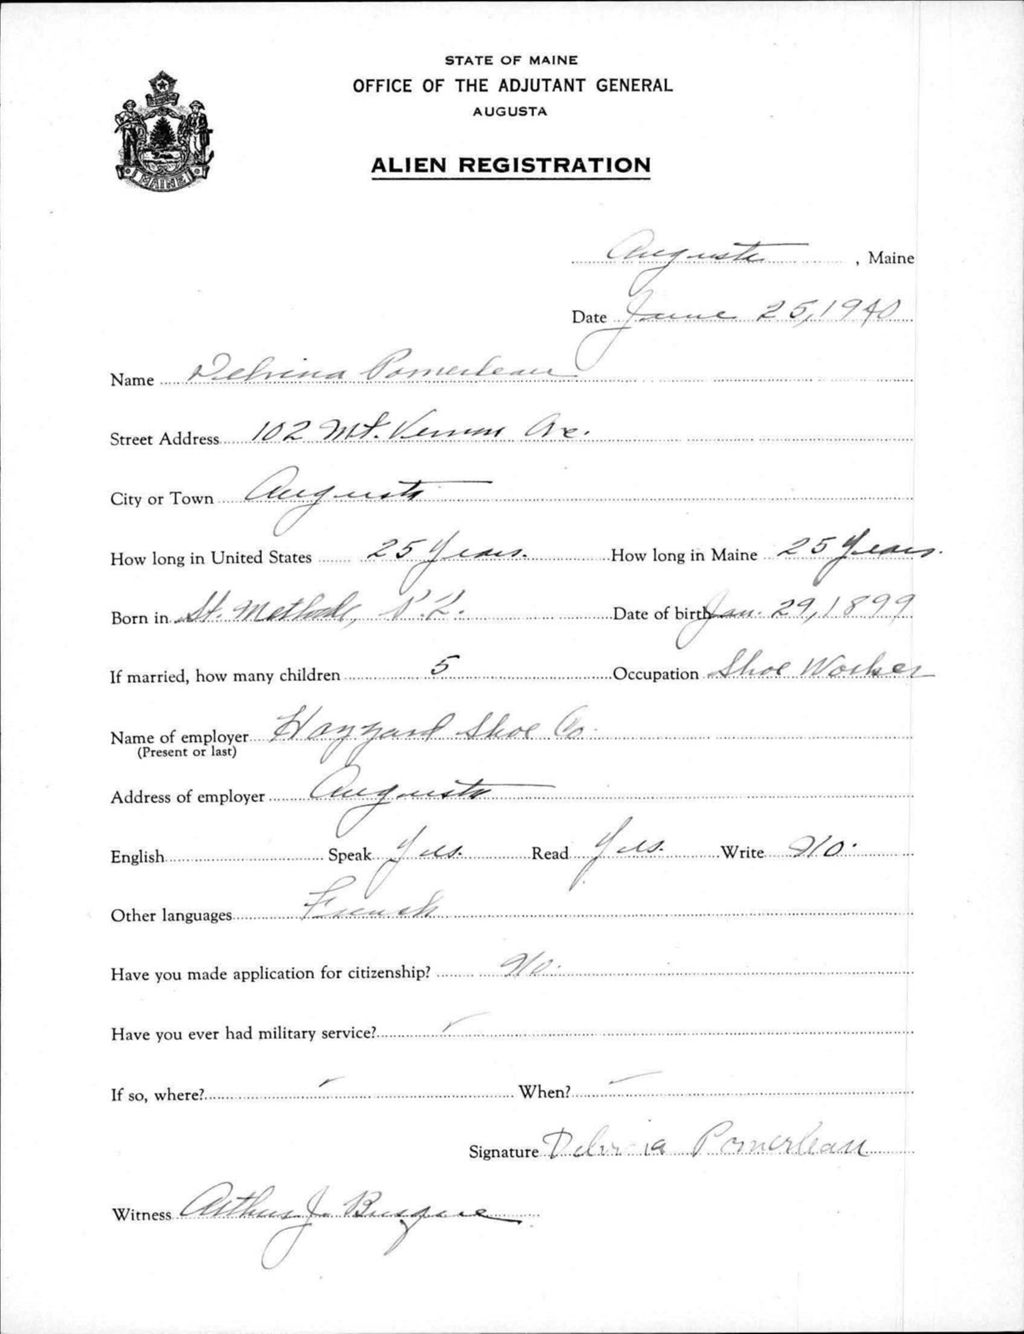 STATE OF MAINE
OFFICE OF THE ADJUTANT GENERAL
AUGUSTA
ALIEN REGISTRATION
MAINE
Augusta, Maine
Date June 25, 1940
Name Delvina Pomerleau
Street Address 102 Mt. Vernon Ave.
City or Town Augusta
How long in United States 25 Years. How long in Maine 25 Years.
Born in St. Methode, P.Q. Date of birth Jan. 29, 1899
If married, how many children 5 Occupation Shoe Worker
Name of employer Hazzard Shoe Co.
(Present or last)
Address of employer Augusta
English Speak Yes. Read Yes. Write No.
Other languages French
Have you made application for citizenship? No.
Have you ever had military service?
If so, where? When?
Signature Delvina Pomerleau
Witness Arthur J. Busque